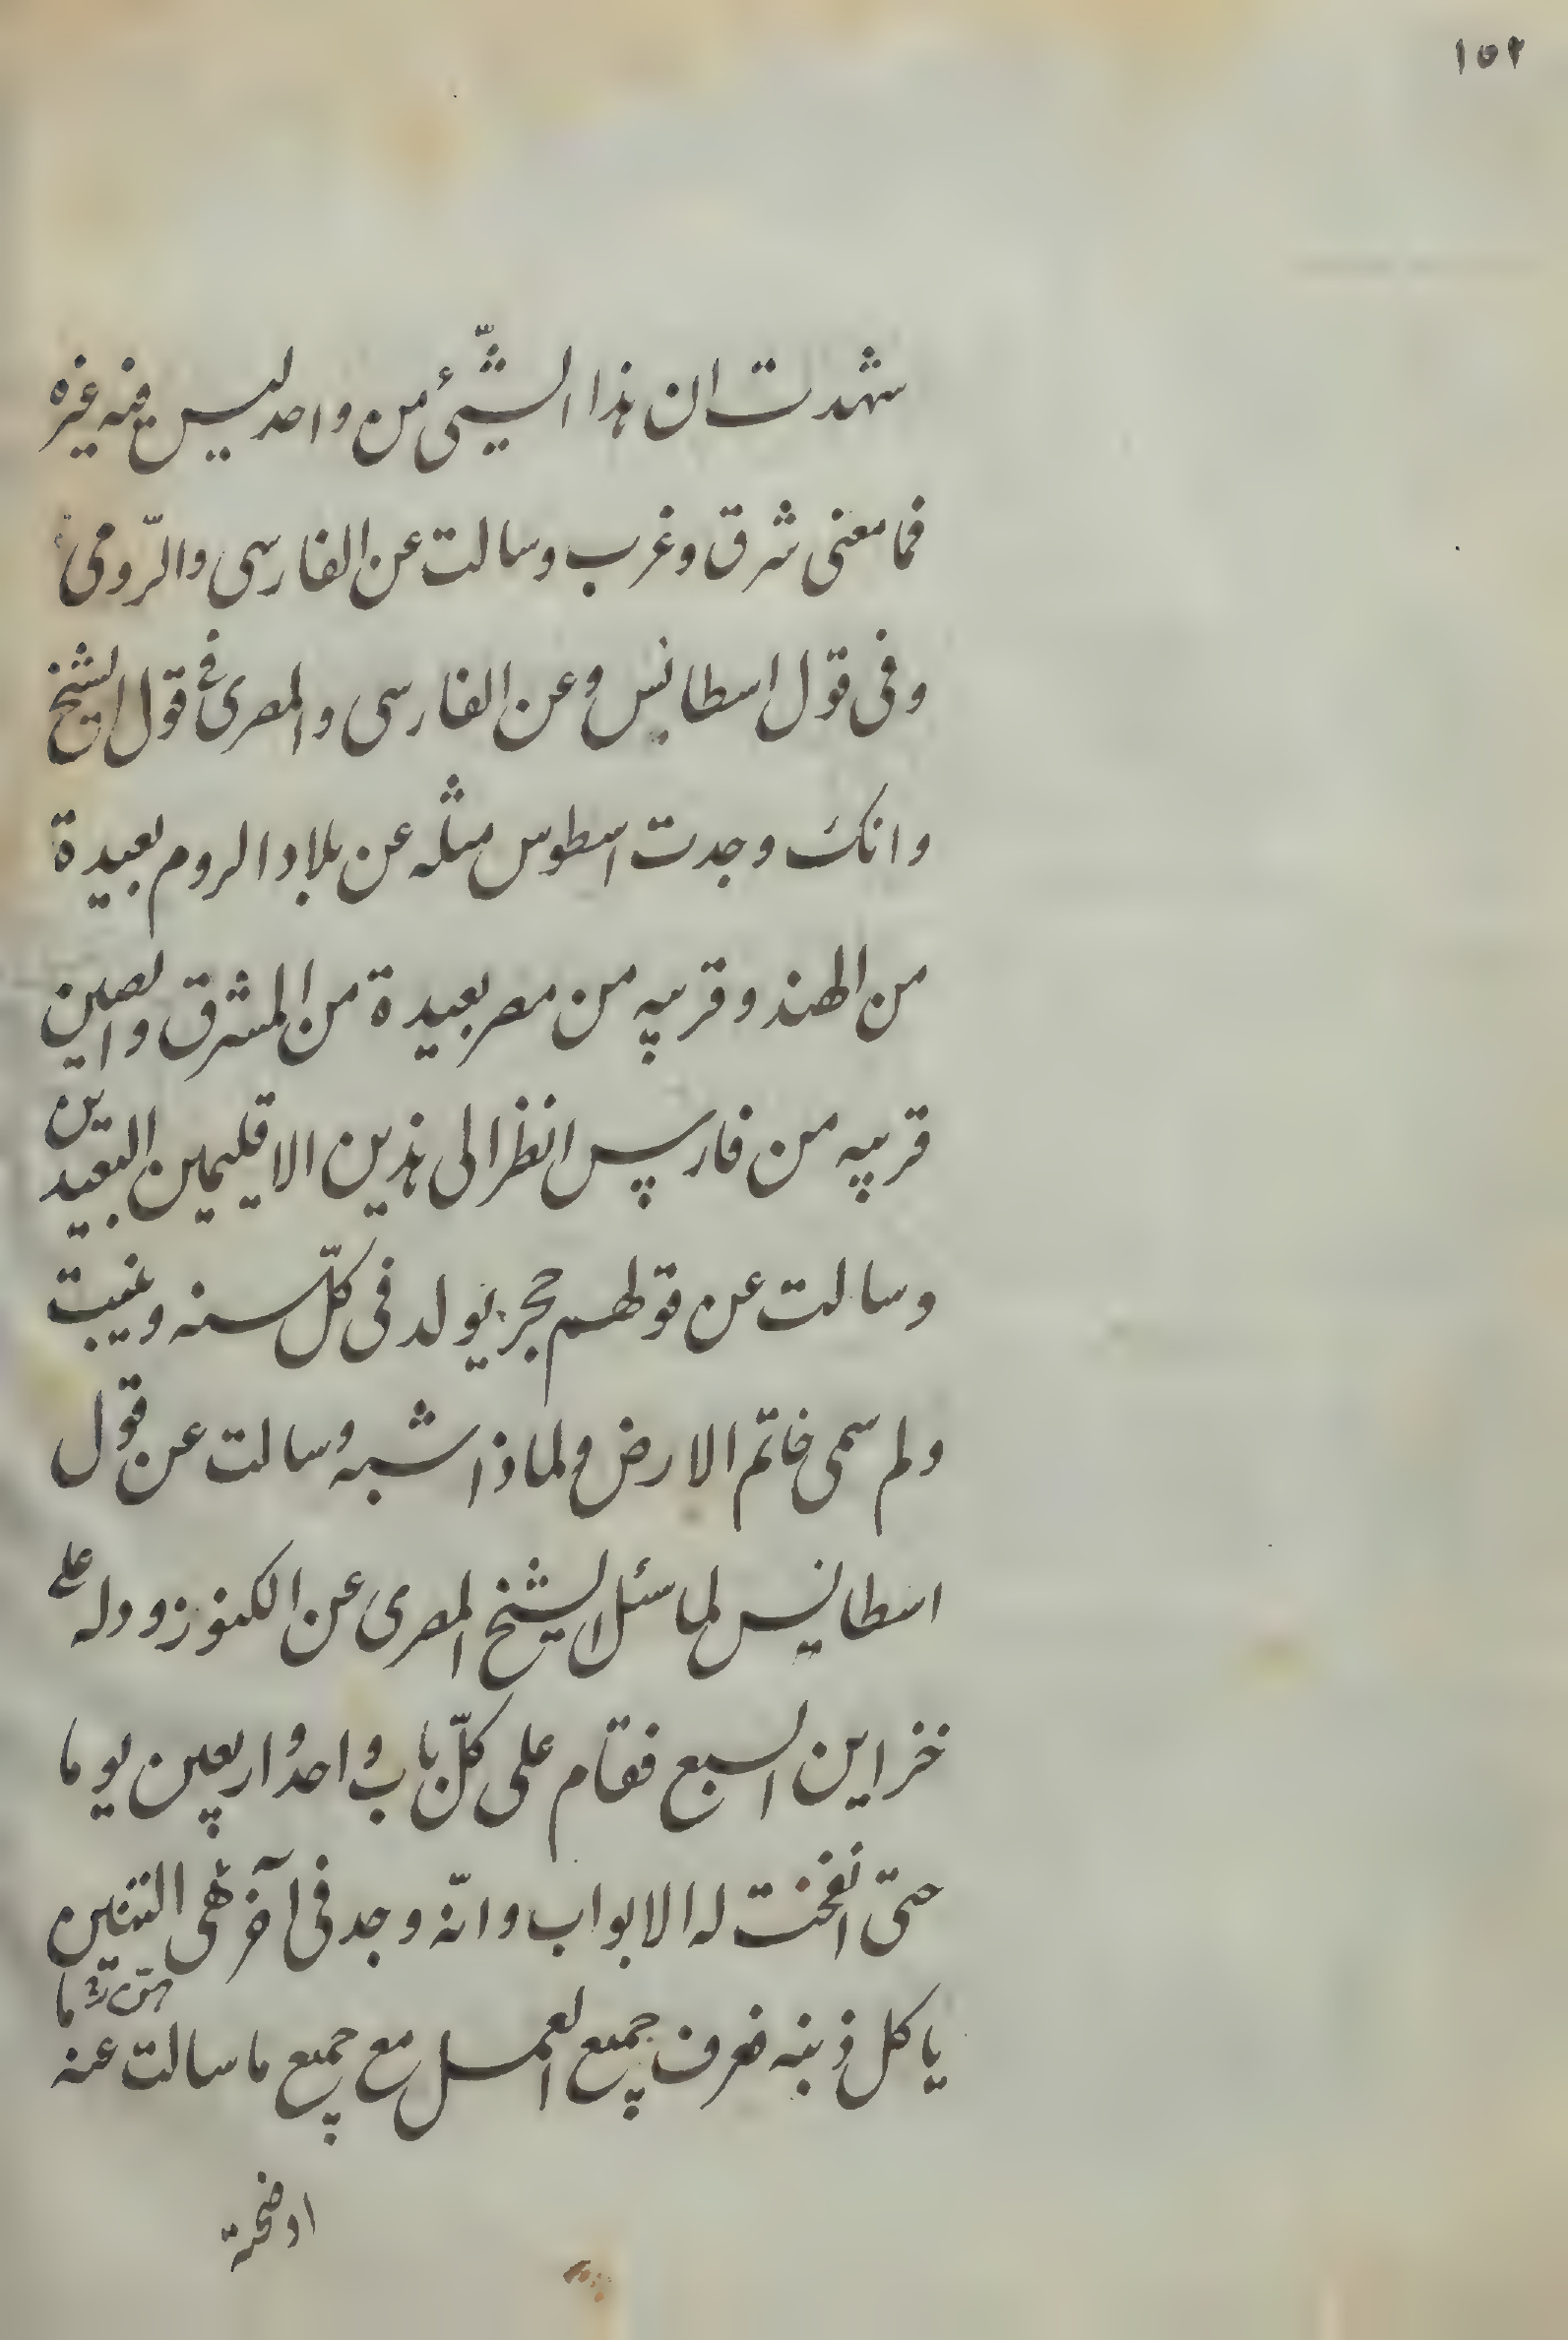 ١٥٢
شهدت ان هذا الشّیئ من واحد لیس فیه غیره
فما معنی شرق وغرب وسالت عن الفارسی والرّومی
وفی قول اسطانس وعن الفارسی والمصری فی قول الشیخ
وانک وجدت اسطوس مثله عن بلاد الروم بعیدة
من الهند وقریبه من مصر بعیدة من المشرق والصین
قریبه من فارس انظر الی هذین الاقلیمین البعیدین
وسالت عن قولهم حجر یولد فی کلّ سنه وغیبت
ولم سمی خاتم الارض ولماذا شبه وسالت عن قول
اسطانیس لما سئل الشیخ المصری عن الکنوز ودله علی
خزاین السبع فقام علی کلّ باب واحد واربعین یوما
حتّی انفتحت له الابواب وانّه وجد فی آخرهی التنین
یاکل ذنبه فعرف جمیع العمل مع جمیع ما سالت عنه ما
اوضحته